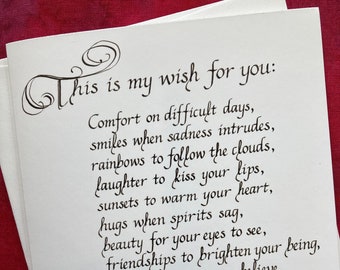 This is my wish for you:
Comfort on difficult days,
smiles when sadness intrudes,
rainbows to follow the clouds,
laughter to kiss your lips,
sunsets to warm your heart,
hugs when spirits sag,
beauty for your eyes to see,
friendships to brighten your being,
believe